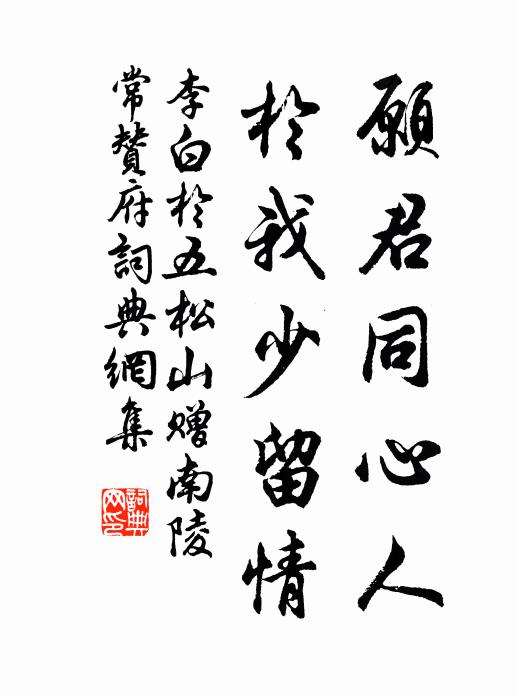 願君同心人
於我少留情
李白於五松山贈南陵
常贊府詞典網集
詞典
网印